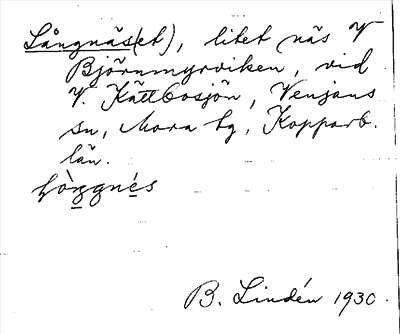 Långnäs(et), litet näs V
Björnmyrviken, vid
V. Kättbosjön, Venjans
sn, Mora tg, Kopparb.
län.
B. Lindén 1930.